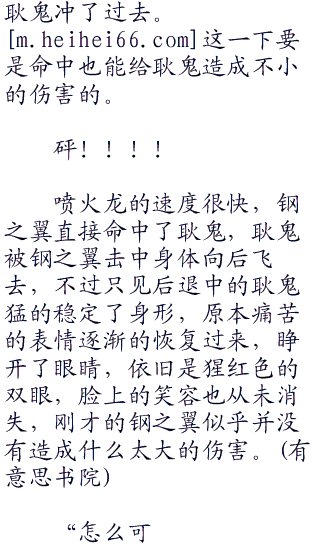 耿鬼冲了过去。
[m.heihei66.com]这一下要
是命中也能给耿鬼造成不小
的伤害的。
砰！！！！
喷火龙的速度很快，钢
之翼直接命中了耿鬼，耿鬼
被钢之翼击中身体向后飞
去，不过只见后退中的耿鬼
猛的稳定了身形，原本痛苦
的表情逐渐的恢复过来，睁
开了眼睛，依旧是猩红色的
双眼，脸上的笑容也从未消
失，刚才的钢之翼似乎并没
有造成什么太大的伤害。(有
意思书院)
“怎么可